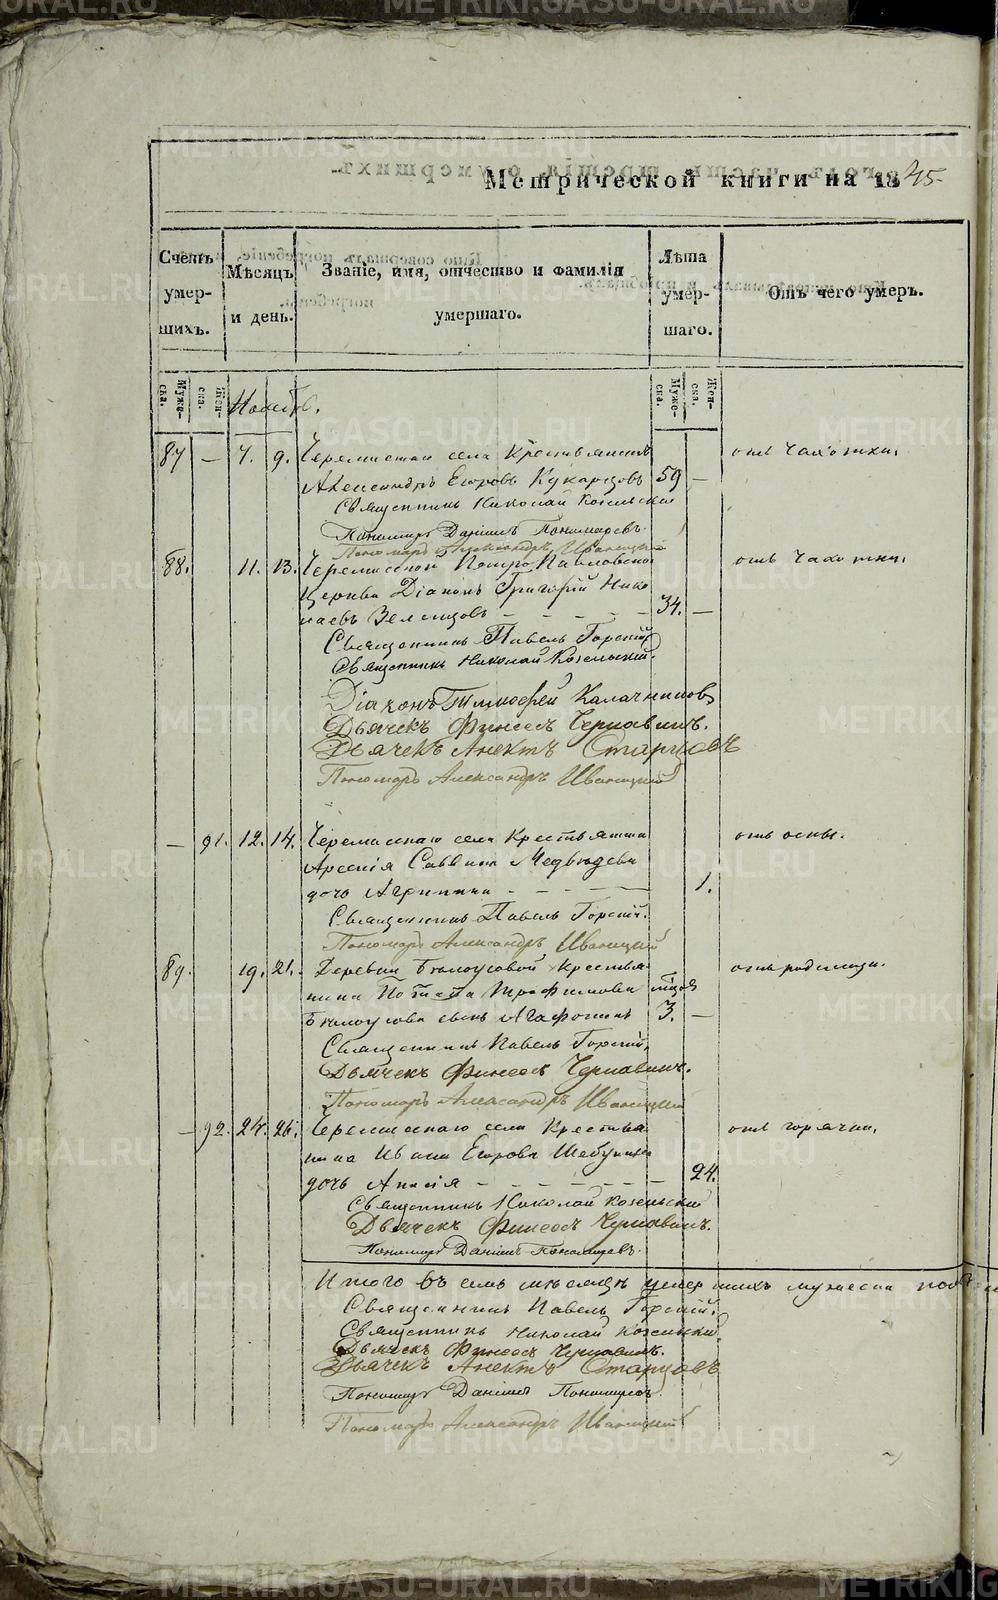 Метрической книги на 1845
Счетъ умер-шихъ.
Мѣсяцъ и день.
Званіе, имя, отчество и фамилія умершаго.
Лѣта умер-шаго.
Отъ чего умеръ.
Муже-ска.
Жен-ска.
Муже-ска.
Жен-ска.
Ноябрь.
87 — 7. 9. Черемискаго села Крестьянинъ отъ чахотки.
Александръ Егоровъ Кукарцовъ 59 —
Священникъ Николай Козельский
Пономарь Даніилъ Пономаревъ.
Пономарь Александръ Иваницкий
88. 11. 13. Черемисской Петро Павловской отъ чахотки.
Церкви Діаконъ Григорій Нико
лаевъ Зеленцовъ - - - 34. —
Священникъ Павелъ Горскій
Священникъ Николай Козельский.
Діаконъ Тимофей Калачниковъ
Дьячекъ Финеесъ Чернавинъ.
Дьячекъ Анектъ Старцовъ
Пономарь Александръ Иваницкий
— 91. 12. 14. Черемискаго села Крестьянина отъ оспы.
Арсенія Саввина Медвѣдева
дочь Агрипина - - - 1.
Священникъ Павелъ Горскій.
Пономарь Александръ Иваницкий
89. 19. 21. Деревни Бѣлоусовой Крестья отъ родимца.
нина Трофимова мѣсяц
Бѣлоусова сынъ Агафонъ 3. —
Священникъ Павелъ Горскій.
Дьячекъ Финеесъ Чернавинъ.
Пономарь Александръ Иваницкий
— 92. 24. 26. Черемискаго села Крестья отъ горячки.
нина Ивана Егорова
дочь - - - 24.
Священникъ Николай Козельский
Дьячекъ Финеесъ Чернавинъ.
Пономарь Даніилъ Пономаревъ.
Итого въ семъ мѣсяцѣ умершихъ мужеска
Священникъ Павелъ Горскій.
Священникъ Николай Козельский.
Дьячекъ Финеесъ Чернавинъ.
Дьячекъ Анектъ Старцовъ
Пономарь Даніилъ Пономаревъ.
Пономарь Александръ Иваницкий
METRIKI.GASO-URAL.RU